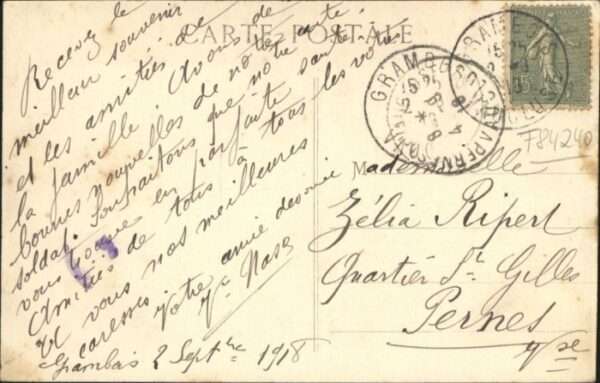 CARTE POSTALE
Recevez le
meilleur souvenir
et les amitiés de
la famille. Avons de
bonnes nouvelles de notre
soldat. Souhaitons que
vous en parfaite santé
Amitiés de tous à tous les vôtres
Et vous nos meilleures
caresses. Votre amie dévouée
Grambois 2 Septbre 1918
Mademoiselle
Zélia Ripert
Quartier St. Gilles
Pernes
Vse
F84240
GRAMBOIS